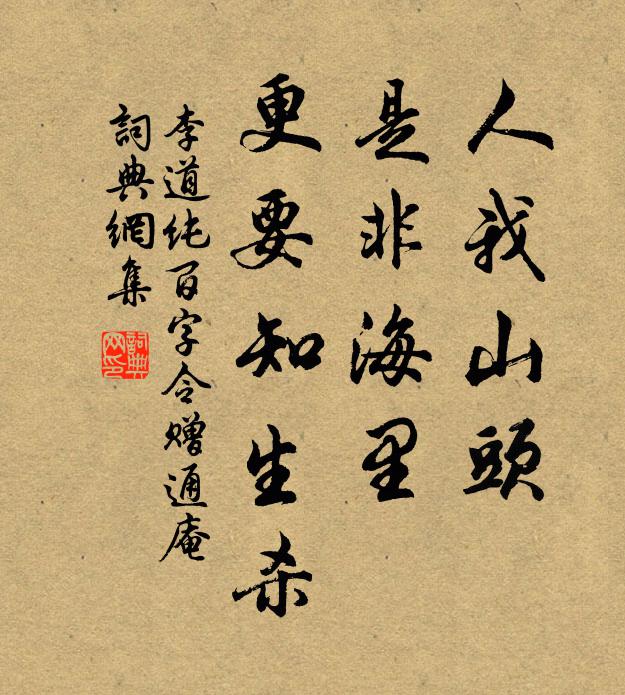 人我山頭
是非海里
更要知生杀
李道纯百字令赠通庵
詞典網集
詞典网印